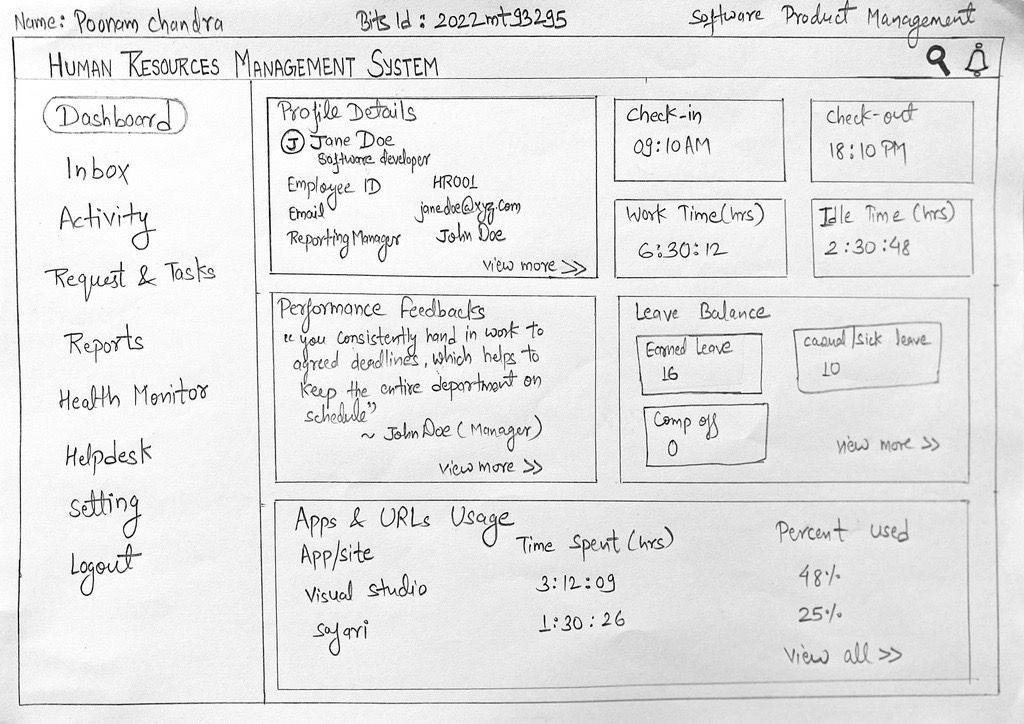 Name: Poonam Chandra
Bits Id: 2022mt93295
Software Product Management
HUMAN RESOURCES MANAGEMENT SYSTEM
Dashboard
Inbox
Activity
Request & Tasks
Reports
Health Monitor
Helpdesk
Setting
Logout
Profile Details
J Jane Doe
Software developer
Employee ID HR001
Email janedoe@xyz.com
Reporting Manager John Doe
view more >>
Check-in
09:10 AM
Check-out
18:10 PM
Work Time (hrs)
6:30:12
Idle Time (hrs)
2:30:48
Performance Feedbacks
"you consistently hand in work to
agreed deadlines, which helps to
keep the entire department on
schedule"
~ John Doe (Manager)
view more >>
Leave Balance
Earned Leave
16
casual/sick leave
10
Comp off
0
view more >>
Apps & URLs Usage
App/site Time Spent (hrs) Percent used
Visual studio 3:12:09 48%
safari 1:30:26 25%
View all >>